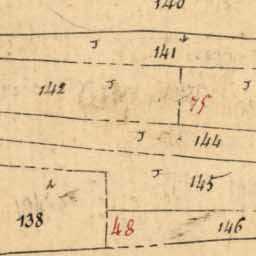 140
141
142
75
144
145
138
48
146